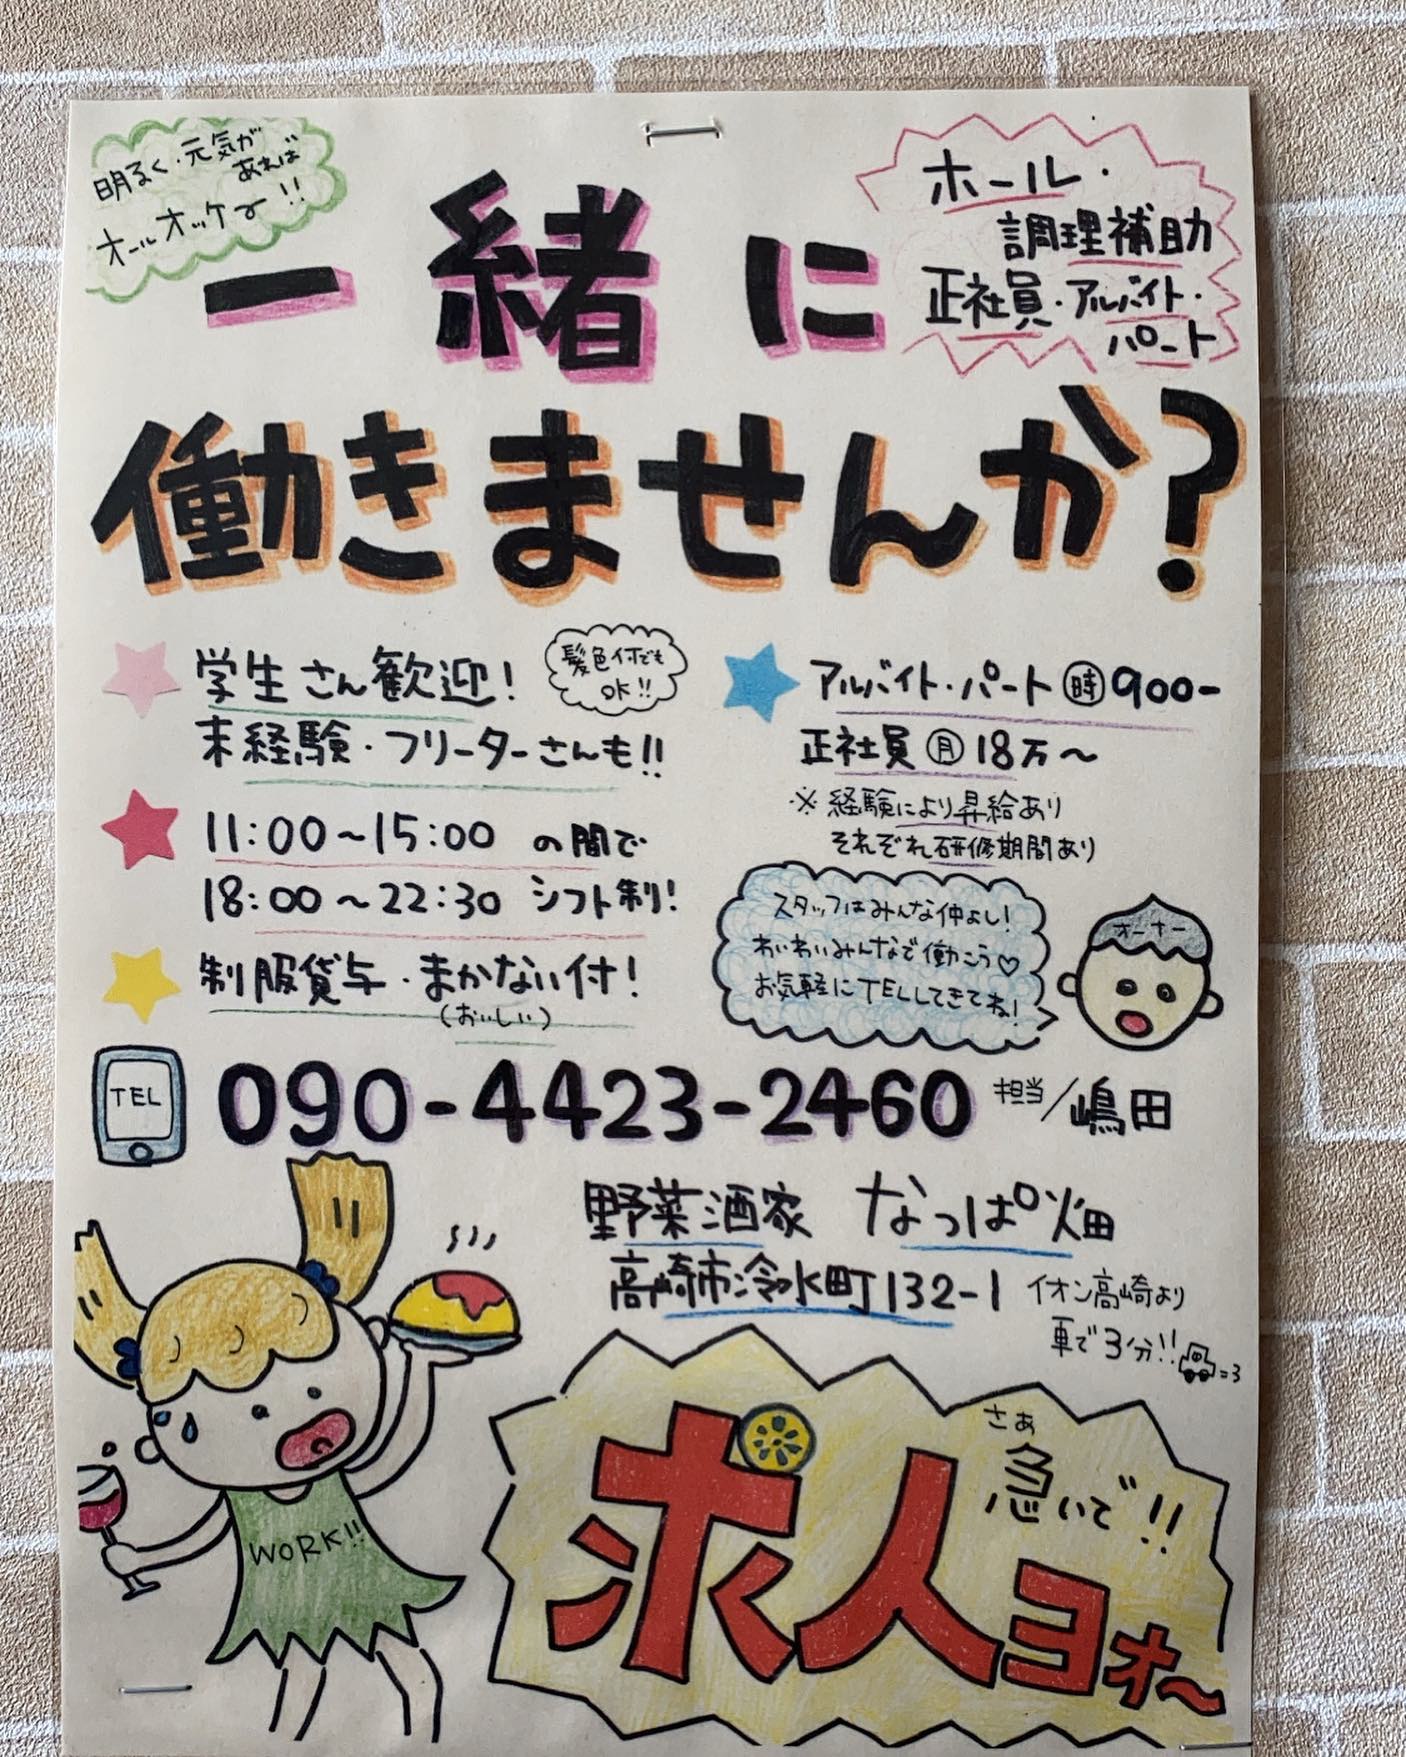 明るく・元気が
あれば
オールオッケー!!
ホール・
調理補助
正社員・アルバイト・
パート
一緒に
働きませんか?
学生さん歓迎!
髪色何でも
OK!!
未経験・フリーターさんも!!
11:00～15:00 の間で
18:00～22:30 シフト制!
制服貸与・まかない付!
(おいしい)
アルバイト・パート 時 900-
正社員 月 18万～
※経験により昇給あり
それぞれ研修期間あり
スタッフはみんな仲よし!
わいわいみんなで働こう♡
お気軽にTELしてきてね!
オーナー
TEL
090-4423-2460 担当/嶋田
野菜酒家 なっぱ畑
高崎市冷水町132-1 イオン高崎より
車で3分!!
=3
WORK!!
さぁ
急いで!!
求人ヨォ～